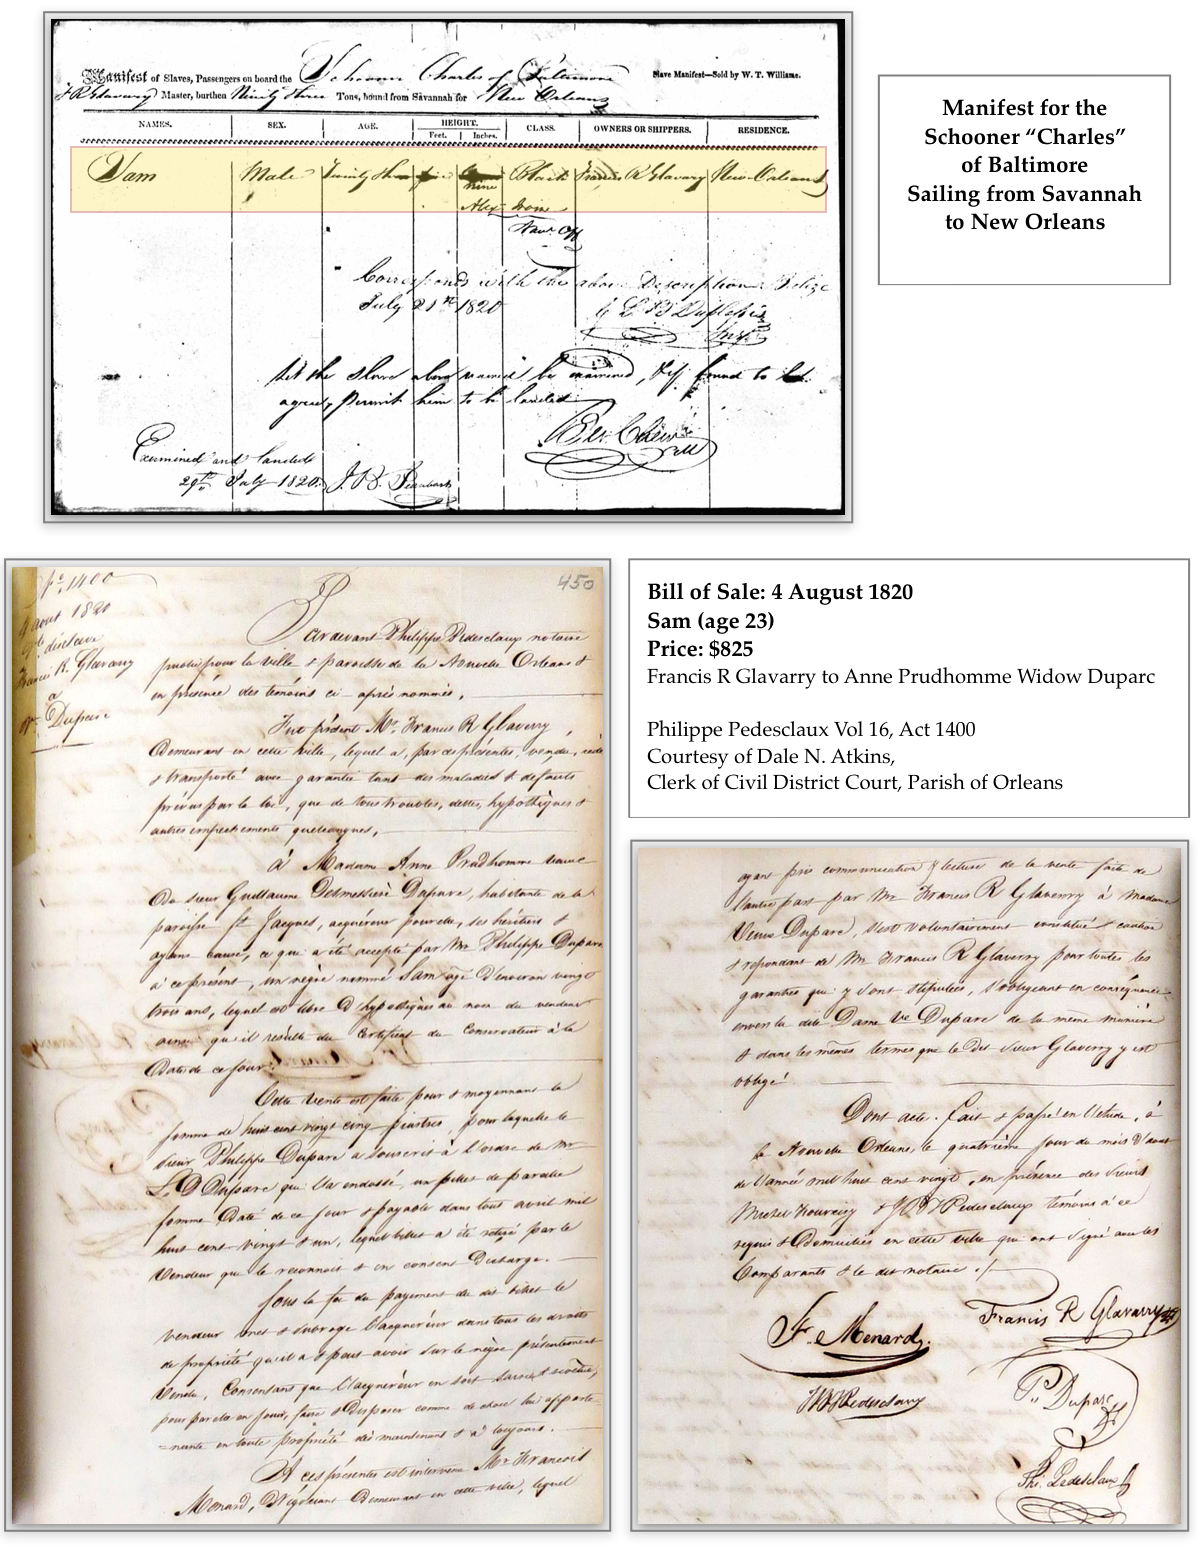 Manifest of Slaves, Passengers on board the Schooner Charles of Baltimore
Slave Manifest—Sold by W. T. Williams.
F R Glavarry Master, burthen Ninity three Tons, bound from Savannah for New Orleans
NAMES. SEX. AGE. HEIGHT. CLASS. OWNERS OR SHIPPERS. RESIDENCE.
Feet. Inches.
Sam Male Twinity three five Black Francis R Glavarry New Orleans
nine
Alex Irvine
Corresponds with the above Description
July 21st 1820
G L B Duplessis
Insp
Let the slave above named be examined, & if found to
agree, permit him to be landed
Bev. Chew
Examined and landed
29th July 1820.
Manifest for the
Schooner “Charles”
of Baltimore
Sailing from Savannah
to New Orleans
No. 1400
4 aout 1820
Vte d'esclave
Francis R. Glavarry
a
Ve Duparc
450
Pardevant Philippe Pedesclaux notaire
public pour la ville & paroisse de la Nouvelle Orleans &
en presence des temoins ci-après nommés,
Fut présent Mr. Francis R Glaverry,
Demeurant en cette ville, lequel a, par ces présentes, vendu, cédé
& transporté avec garantie tant des maladies & defauts
prévus par la loi, que de tous troubles, dettes, hypothèques &
autres empechements quelconques,
à Madame Anne Prudhomme veuve
Du sieur Guillaume Desmessière Duparc, habitante de la
paroisse St Jacques, acquéreur pour elle, ses héritiers &
ayans cause, ce qui a été accepté par Mr Philippe Duparc
à ce présent, un nègre nommé Sam agé d'environ vingt
trois ans, lequel est libre d'hypothèques au nom du vendeur
ainsi qu'il résulte du Certificat du Conservateur à la
Date de ce jour.
Cette vente est faite pour & moyennant la
somme de huit cent vingt cinq piastres, pour laquelle le
sieur Philippe Duparc a souscrit à l'ordre de Mr
L. D Duparc qui l'a endossé, un billet de pareille
somme Daté de ce jour & payable dans tout avril mil
huit cent vingt & un, lequel billet a été reçu par le
Vendeur qui le reconnoit & en consent Décharge.
Sous la foi du payement du dit billet le
vendeur met & subroge l'acquéreur dans tous les droits
de propriété qu'il a & peut avoir sur le nègre présentement
Vendu, Consentant que l'acquéreur en soit saisi &
pour par elle en jouir, faire & Disposer comme de chose lui apparte-
=nante en toute propriété dès maintenant & à toujours.
A ces présentes est intervenu Mr Francois
Menard, Négociant Demeurant en cette ville, lequel
Bill of Sale: 4 August 1820
Sam (age 23)
Price: $825
Francis R Glavarry to Anne Prudhomme Widow Duparc
Philippe Pedesclaux Vol 16, Act 1400
Courtesy of Dale N. Atkins,
Clerk of Civil District Court, Parish of Orleans
ayant pris communication & lecture de la vente faite de
l'autre part par Mr Francis R Glaverry à madame
Veuve Duparc, s'est volontairement constitué caution
& repondant de Mr Francis R Glaverry pour toutes les
garanties qui y sont stipulées, s'obligeant en conséquence
envers la dite Dame Ve Duparc de la même manière
& dans les mêmes termes que le Dit sieur Glaverry y est
obligé
Dont acte. Fait & passé en l'étude, à
la Nouvelle Orleans, le quatrième jour du mois d'aout
de l'année mil huit cent vingt, en présence des sieurs
Michel Fourcisy & Pedesclaux temoins à ce
requis & Domiciliés en cette ville qui ont signé avec les
Comparants & le dit notaire ./.
F. Menard.
Francis R Glavarry
Pedesclaux
P. Duparc
Phi. Pedesclaux